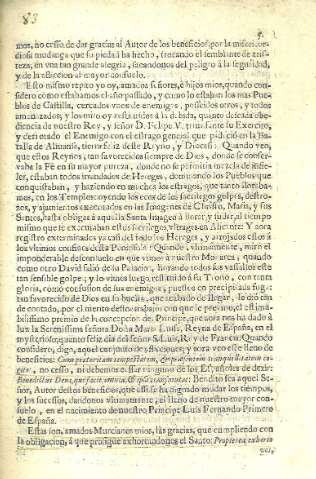 83
5.
mos, no cesso de dar gracias al Autor de los beneficios por la
mudança que su piedad ha hecho, trocando el semblante de tris-
teza, en vna tan grande alegria, sacandonos del peligro à la seguridad,
y de la afliccion al mayor consuelo.
Esto mismo repito yo oy, amados señores, è hijos mios, quando con-
sidero como estabamos el año passado, y como lo estaban los mas Pue-
blos de Castilla, cercados vnos de enemigos, posseidos otros, y todos
amenazados, y los miro oy restituidos à la debida, quanto deseada obe-
diencia de nuestro Rey, y señor D. Felipe V. triunfante su Exercito,
y derrotado el Enemigo con el estrago general que padeciò en la Ba-
talla de Almansa, tierra feliz deste Reyno, y Diocesi: Quando veo,
que estos Reynos, tan favorecidos siempre de Dios, donde se conser-
vaba la Fè en su mayor pureza, donde no se permitia mezcla de infie-
les, estaban todos inundados de Hereges, dominando los Pueblos que
conquistaban, y haziendo en muchos los estragos, que tanto llora-
mos, en los Templos: oyendo los ecos de los sacrilegos golpes, destro-
zos, y ajamientos executados en las Imagenes de Christo, Maria, y sus
Santos, hasta obligar à aquella Santa Imagen à llorar, y sudar, al tiempo
mismo que se executaban estos sacrilegos vltrages en Alicante: Y aora
registro exterminados ya casi del todo los Hereges, y arrojados estos à
los vltimos confines de la Peninsula: Quando, vltimamente, miro el
imponderable desconsuelo en que vimos à nuestro Monarca, quando
como otro David saliò de su Palacio, llorando todos sus vassallos este
tan sensible golpe; y lo vimos luego, restituido à su Trono, con tanta
gloria, como confusion de sus enemigos, puestos en precipitada fuga:
tan favorecido de Dios en su buelta, que acabado de llegar, lo diò tan
de contado, por el mento de tanto trabajo con que le premiò, el estima-
bilissimo premio de la concepcion de Principe, que aora nos hà dado à
luz la Serenissima señora Doña Maria Luisa, Reyna de España, en el
mysterioso, quanto feliz dia del señor S. Luis, Rey de Francia: Quando
considero, digo, aquel conjunto de aflicciones, y aora veo este lleno de
beneficios:
no cesso, ni debemos cessar ninguno de los Españoles de dezir:
Bendito sea aquel Se-
ñor, Autor destos beneficios, que assi se ha dignado mudar los tiempos,
y los sucessos, dandonos vltimamente, el lleno de nuestro mayor con-
suelo, en el nacimiento de nuestro Principe Luis Fernando Primero
de España.
Estas son, amados Murcianos mios, las gracias, que cumpliendo con
la obligacion, à que prosigue exhortandonos el Santo: Propterea exhortor
vos,